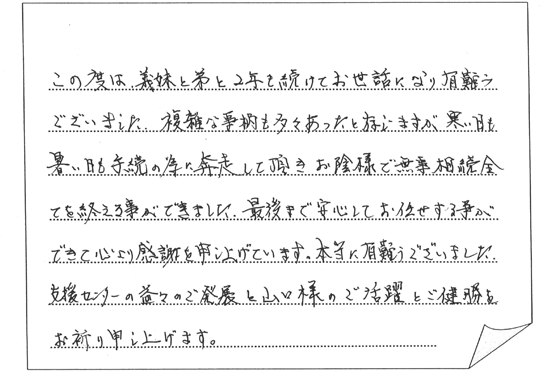 この度は、義妹と弟と2年も続けてお世話になり有難う
ございました。複雑な事柄も多々あったと存じますが寒い日も
暑い日も手続の為に奔走して頂きお陰様で無事相続全
てを終える事ができました。最後まで安心してお任せする事が
できて心より感謝を申し上げています。本当に有難うございました。
支援センターの益々のご発展と山口様のご活躍とご健勝を
お祈り申し上げます。